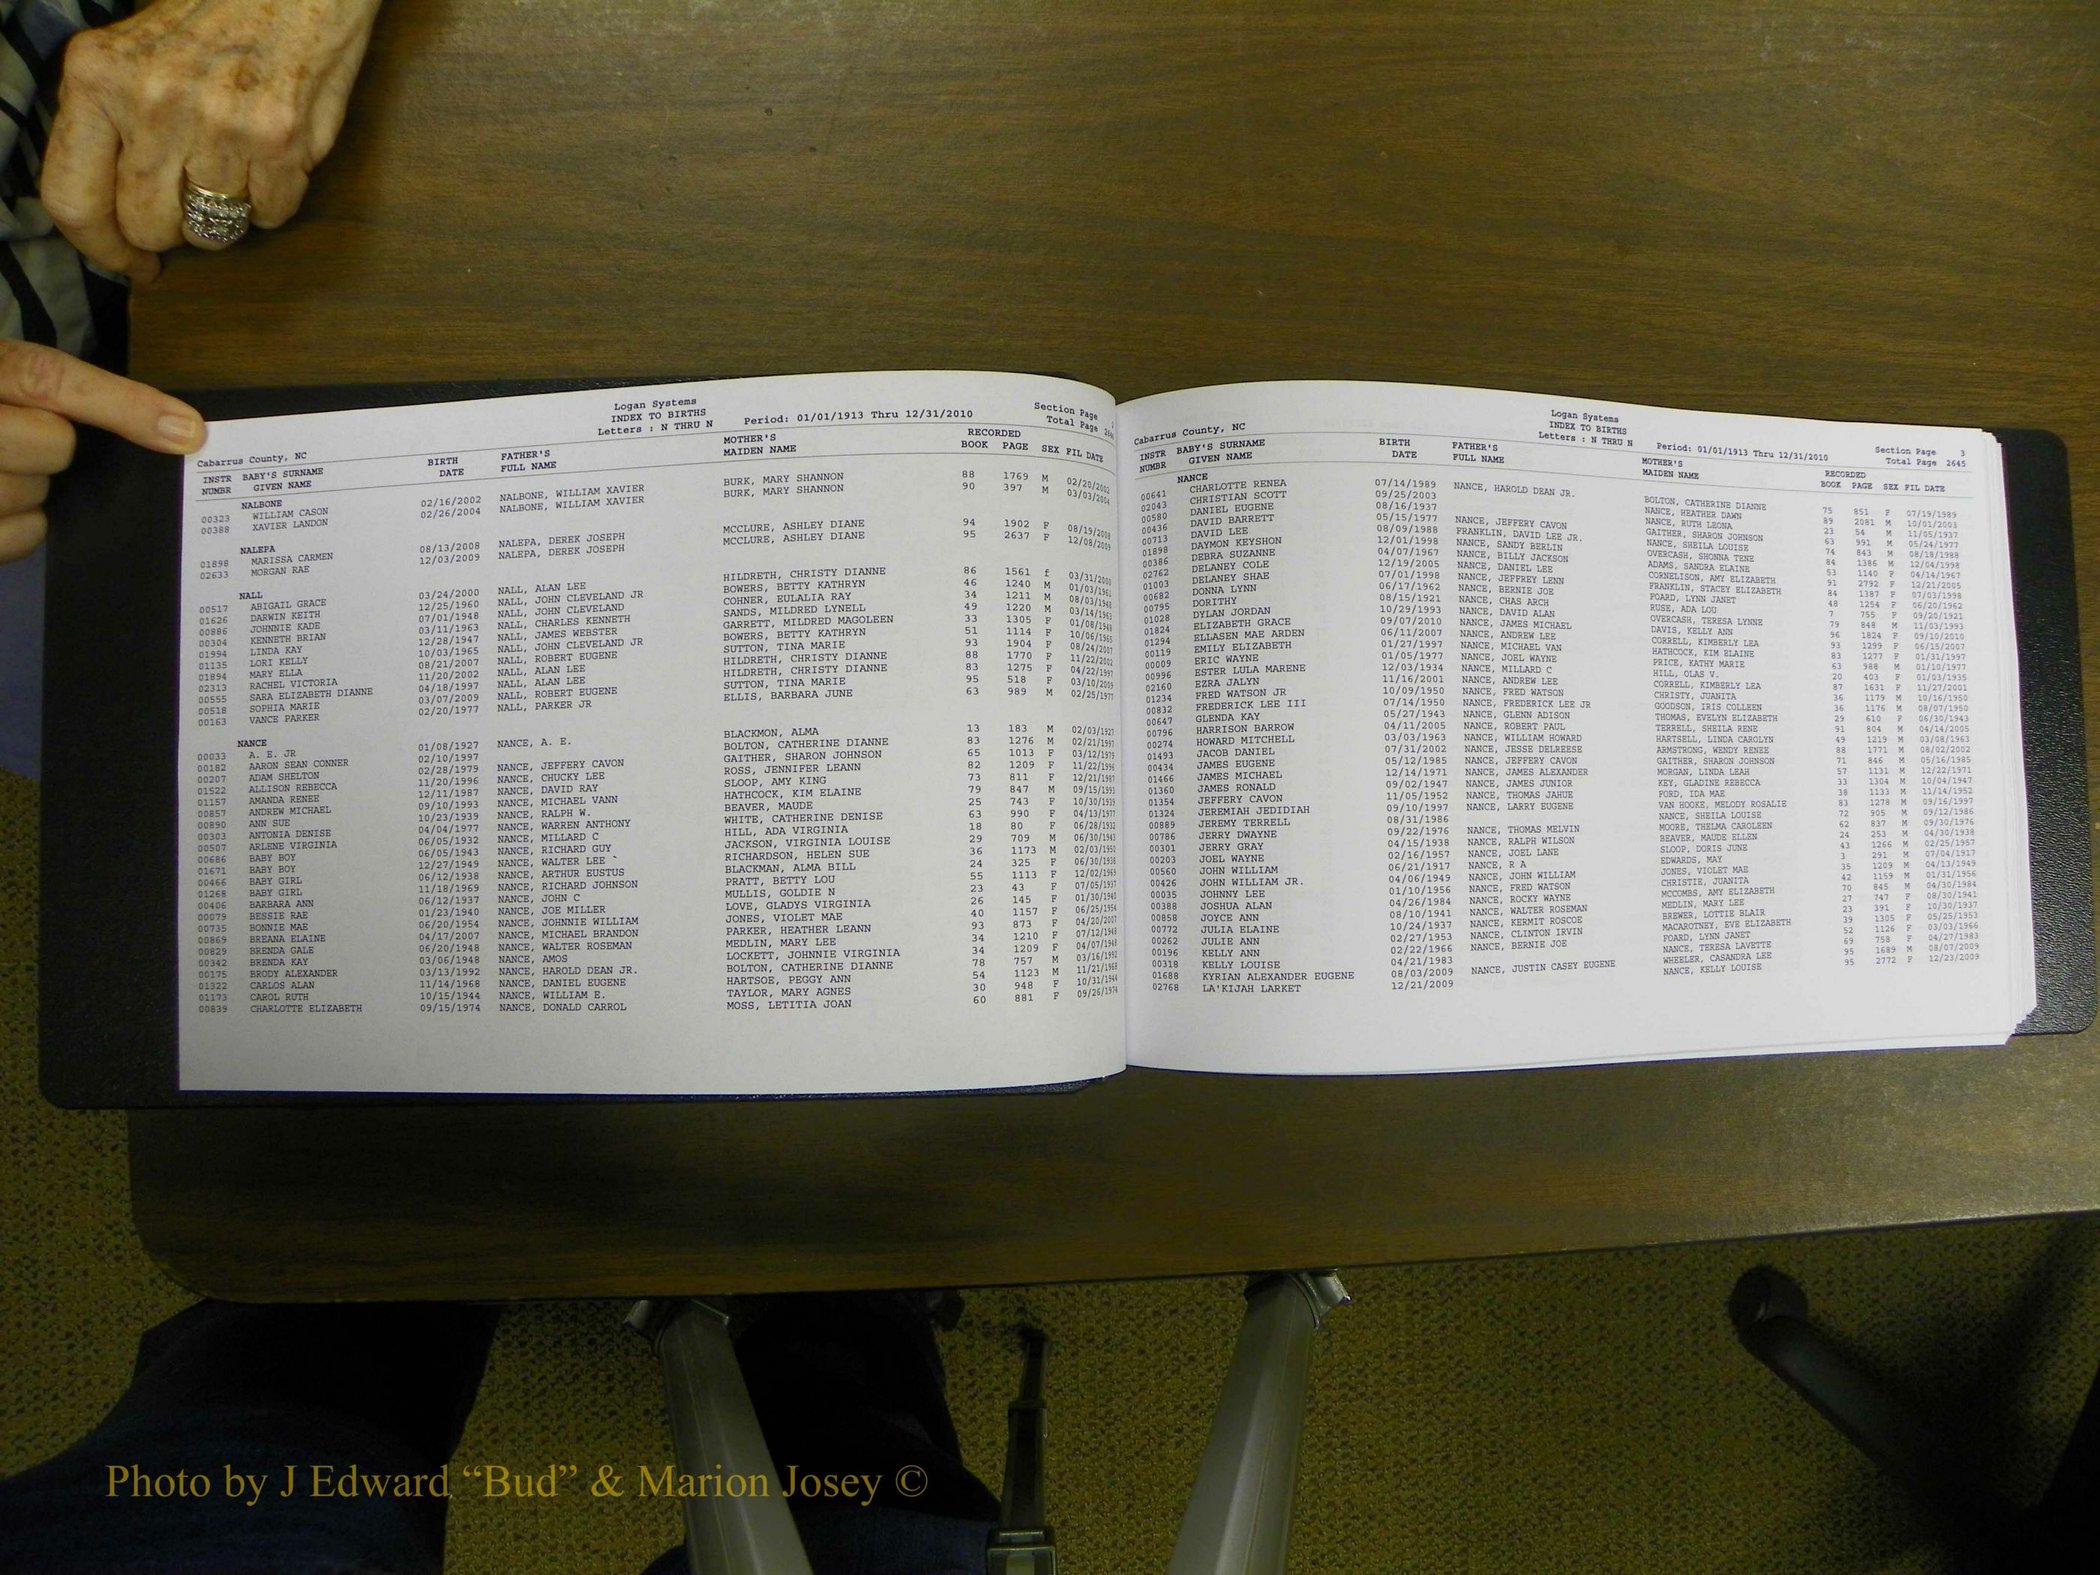 Logan Systems
INDEX TO BIRTHS
Letters : N THRU N
Period: 01/01/1913 Thru 12/31/2010
Section Page
Total Page
Cabarrus County, NC
INSTR BABY'S SURNAME BIRTH FATHER'S MOTHER'S RECORDED
NUMBR GIVEN NAME DATE FULL NAME MAIDEN NAME BOOK PAGE SEX FIL DATE
NALBONE
00323 WILLIAM CASON 02/16/2002 NALBONE, WILLIAM XAVIER BURK, MARY SHANNON 88 1769 M 02/20/2002
00388 XAVIER LANDON 02/26/2004 NALBONE, WILLIAM XAVIER BURK, MARY SHANNON 90 397 M 03/03/2004
NALEPA
01898 MARISSA CARMEN 08/13/2008 NALEPA, DEREK JOSEPH MCCLURE, ASHLEY DIANE 94 1902 F 08/19/2008
02633 MORGAN RAE 12/03/2009 NALEPA, DEREK JOSEPH MCCLURE, ASHLEY DIANE 95 2637 F 12/08/2009
NALL
00517 ABIGAIL GRACE 03/24/2000 NALL, ALAN LEE HILDRETH, CHRISTY DIANNE 86 1561 f 03/31/2000
01626 DARWIN KEITH 12/25/1960 NALL, JOHN CLEVELAND JR BOWERS, BETTY KATHRYN 46 1240 M 01/03/1961
00886 JOHNNIE KADE 07/01/1948 NALL, JOHN CLEVELAND COHNER, EULALIA RAY 34 1211 M 08/03/1948
00304 KENNETH BRIAN 03/11/1963 NALL, CHARLES KENNETH SANDS, MILDRED LYNELL 49 1220 M 03/14/1963
01994 LINDA KAY 12/28/1947 NALL, JAMES WEBSTER GARRETT, MILDRED MAGOLEEN 33 1305 F 01/08/1948
01135 LORI KELLY 10/03/1965 NALL, JOHN CLEVELAND JR BOWERS, BETTY KATHRYN 51 1114 F 10/06/1965
01894 MARY ELLA 08/21/2007 NALL, ROBERT EUGENE SUTTON, TINA MARIE 93 1904 F 08/24/2007
02313 RACHEL VICTORIA 11/20/2002 NALL, ALAN LEE HILDRETH, CHRISTY DIANNE 88 1770 F 11/22/2002
00555 SARA ELIZABETH DIANNE 04/18/1997 NALL, ALAN LEE HILDRETH, CHRISTY DIANNE 83 1275 F 04/22/1997
00518 SOPHIA MARIE 03/07/2009 NALL, ROBERT EUGENE SUTTON, TINA MARIE 95 518 F 03/10/2009
00163 VANCE PARKER 02/20/1977 NALL, PARKER JR ELLIS, BARBARA JUNE 63 989 M 02/25/1977
NANCE
00033 A. E. JR 01/08/1927 NANCE, A. E. BLACKMON, ALMA 13 183 M 02/03/1927
00182 AARON SEAN CONNER 02/10/1997 BOLTON, CATHERINE DIANNE 83 1276 M 02/21/1997
00207 ADAM SHELTON 02/28/1979 NANCE, JEFFERY CAVON GAITHER, SHARON JOHNSON 65 1013 F 03/12/1979
01522 ALLISON REBECCA 11/20/1996 NANCE, CHUCKY LEE ROSS, JENNIFER LEANN 82 1209 F 11/22/1996
01157 AMANDA RENEE 12/11/1987 NANCE, DAVID RAY SLOOP, AMY KING 73 811 F 12/21/1987
00857 ANDREW MICHAEL 09/10/1993 NANCE, MICHAEL VANN HATHCOCK, KIM ELAINE 79 847 M 09/15/1993
00890 ANN SUE 10/23/1939 NANCE, RALPH W. BEAVER, MAUDE 25 743 F 10/30/1939
00303 ANTONIA DENISE 04/04/1977 NANCE, WARREN ANTHONY WHITE, CATHERINE DENISE 63 990 F 04/13/1977
00507 ARLENE VIRGINIA 06/05/1932 NANCE, MILLARD C HILL, ADA VIRGINIA 18 80 F 06/28/1932
00686 BABY BOY 06/05/1943 NANCE, RICHARD GUY JACKSON, VIRGINIA LOUISE 29 709 M 06/30/1943
01671 BABY BOY 12/27/1949 NANCE, WALTER LEE ` RICHARDSON, HELEN SUE 36 1173 M 02/03/1950
00466 BABY GIRL 06/12/1938 NANCE, ARTHUR EUSTUS BLACKMAN, ALMA BILL 24 325 F 06/30/1938
01268 BABY GIRL 11/18/1969 NANCE, RICHARD JOHNSON PRATT, BETTY LOU 55 1113 F 12/02/1969
00406 BARBARA ANN 06/12/1937 NANCE, JOHN C MULLIS, GOLDIE N 23 43 F 07/05/1937
00079 BESSIE RAE 01/23/1940 NANCE, JOE MILLER LOVE, GLADYS VIRGINIA 26 145 F 01/30/1940
00735 BONNIE MAE 06/20/1954 NANCE, JOHNNIE WILLIAM JONES, VIOLET MAE 40 1157 F 06/25/1954
00869 BREANA ELAINE 04/17/2007 NANCE, MICHAEL BRANDON PARKER, HEATHER LEANN 93 873 F 04/20/2007
00829 BRENDA GALE 06/20/1948 NANCE, WALTER ROSEMAN MEDLIN, MARY LEE 34 1210 F 07/12/1948
00342 BRENDA KAY 03/06/1948 NANCE, AMOS LOCKETT, JOHNNIE VIRGINIA 34 1209 F 04/07/1948
00175 BRODY ALEXANDER 03/13/1992 NANCE, HAROLD DEAN JR. BOLTON, CATHERINE DIANNE 78 757 M 03/16/1992
01322 CARLOS ALAN 11/14/1968 NANCE, DANIEL EUGENE HARTSOE, PEGGY ANN 54 1123 M 11/21/1968
01173 CAROL RUTH 10/15/1944 NANCE, WILLIAM E. TAYLOR, MARY AGNES 30 948 F 10/31/1944
00839 CHARLOTTE ELIZABETH 09/15/1974 NANCE, DONALD CARROL MOSS, LETITIA JOAN 60 881 F 09/26/1974
Logan Systems
INDEX TO BIRTHS
Letters : N THRU N
Period: 01/01/1913 Thru 12/31/2010
Section Page 3
Total Page 2645
Cabarrus County, NC
INSTR BABY'S SURNAME BIRTH FATHER'S MOTHER'S RECORDED
NUMBR GIVEN NAME DATE FULL NAME MAIDEN NAME BOOK PAGE SEX FIL DATE
NANCE
00641 CHARLOTTE RENEA 07/14/1989 NANCE, HAROLD DEAN JR. BOLTON, CATHERINE DIANNE 75 851 F 07/19/1989
02043 CHRISTIAN SCOTT 09/25/2003 NANCE, HEATHER DAWN 89 2081 M 10/01/2003
00580 DANIEL EUGENE 08/16/1937 NANCE, RUTH LEONA 23 54 M 11/05/1937
00436 DAVID BARRETT 05/15/1977 NANCE, JEFFERY CAVON GAITHER, SHARON JOHNSON 63 991 M 05/24/1977
00713 DAVID LEE 08/09/1988 FRANKLIN, DAVID LEE JR. NANCE, SHEILA LOUISE 74 843 M 08/18/1988
01898 DAYMON KEYSHON 12/01/1998 NANCE, SANDY BERLIN OVERCASH, SHONNA TENE 84 1386 M 12/04/1998
00386 DEBRA SUZANNE 04/07/1967 NANCE, BILLY JACKSON ADAMS, SANDRA ELAINE 53 1140 F 04/14/1967
02762 DELANEY COLE 12/19/2005 NANCE, DANIEL LEE CORNELISON, AMY ELIZABETH 91 2792 F 12/21/2005
01003 DELANEY SHAE 07/01/1998 NANCE, JEFFREY LENN FRANKLIN, STACEY ELIZABETH 84 1387 F 07/03/1998
00682 DONNA LYNN 06/17/1962 NANCE, BERNIE JOE FOARD, LYNN JANET 48 1254 F 06/20/1962
00795 DORITHY 08/15/1921 NANCE, CHAS ARCH RUSE, ADA LOU 7 755 F 09/20/1921
01028 DYLAN JORDAN 10/29/1993 NANCE, DAVID ALAN OVERCASH, TERESA LYNNE 79 848 M 11/03/1993
01824 ELIZABETH GRACE 09/07/2010 NANCE, JAMES MICHAEL DAVIS, KELLY ANN 96 1824 F 09/10/2010
01294 ELLASEN MAE ARDEN 06/11/2007 NANCE, ANDREW LEE CORRELL, KIMBERLY LEA 93 1299 F 06/15/2007
00119 EMILY ELIZABETH 01/27/1997 NANCE, MICHAEL VAN HATHCOCK, KIM ELAINE 83 1277 F 01/31/1997
00009 ERIC WAYNE 01/05/1977 NANCE, JOEL WAYNE PRICE, KATHY MARIE 63 988 M 01/10/1977
00996 ESTER LULA MARENE 12/03/1934 NANCE, MILLARD C HILL, OLAS V. 20 403 F 01/03/1935
02160 EZRA JALYN 11/16/2001 NANCE, ANDREW LEE CORRELL, KIMBERLY LEA 87 1631 F 11/27/2001
01234 FRED WATSON JR 10/09/1950 NANCE, FRED WATSON CHRISTY, JUANITA 36 1179 M 10/16/1950
00832 FREDERICK LEE III 07/14/1950 NANCE, FREDERICK LEE JR GOODSON, IRIS COLLEEN 36 1176 M 08/07/1950
00647 GLENDA KAY 05/27/1943 NANCE, GLENN ADISON THOMAS, EVELYN ELIZABETH 29 610 F 06/30/1943
00796 HARRISON BARROW 04/11/2005 NANCE, ROBERT PAUL TERRELL, SHEILA RENE 91 804 M 04/14/2005
00274 HOWARD MITCHELL 03/03/1963 NANCE, WILLIAM HOWARD HARTSELL, LINDA CAROLYN 49 1219 M 03/08/1963
01493 JACOB DANIEL 07/31/2002 NANCE, JESSE DELREESE ARMSTRONG, WENDY RENEE 88 1771 M 08/02/2002
00434 JAMES EUGENE 05/12/1985 NANCE, JEFFERY CAVON GAITHER, SHARON JOHNSON 71 846 M 05/16/1985
01466 JAMES MICHAEL 12/14/1971 NANCE, JAMES ALEXANDER MORGAN, LINDA LEAH 57 1131 M 12/22/1971
01360 JAMES RONALD 09/02/1947 NANCE, JAMES JUNIOR KEY, GLADINE REBECCA 33 1304 M 10/04/1947
01354 JEFFERY CAVON 11/05/1952 NANCE, THOMAS JAHUE FORD, IDA MAE 38 1133 M 11/14/1952
01324 JEREMIAH JEDIDIAH 09/10/1997 NANCE, LARRY EUGENE VAN HOOKE, MELODY ROSALIE 83 1278 M 09/16/1997
00889 JEREMY TERRELL 08/31/1986 NANCE, SHEILA LOUISE 72 905 M 09/12/1986
00786 JERRY DWAYNE 09/22/1976 NANCE, THOMAS MELVIN MOORE, THELMA CAROLEEN 62 837 M 09/30/1976
00301 JERRY GRAY 04/15/1938 NANCE, RALPH WILSON BEAVER, MAUDE ELLEN 24 253 M 04/30/1938
00203 JOEL WAYNE 02/16/1957 NANCE, JOEL LANE SLOOP, DORIS JUNE 43 1266 M 02/25/1957
00560 JOHN WILLIAM 06/21/1917 NANCE, R A EDWARDS, MAY 3 291 M 07/04/1917
00426 JOHN WILLIAM JR. 04/06/1949 NANCE, JOHN WILLIAM JONES, VIOLET MAE 35 1209 M 04/13/1949
00035 JOHNNY LEE 01/10/1956 NANCE, FRED WATSON CHRISTIE, JUANITA 42 1159 M 01/31/1956
00388 JOSHUA ALAN 04/26/1984 NANCE, ROCKY WAYNE MCCOMBS, AMY ELIZABETH 70 845 M 04/30/1984
00858 JOYCE ANN 08/10/1941 NANCE, WALTER ROSEMAN MEDLIN, MARY LEE 27 747 F 08/30/1941
00772 JULIA ELAINE 10/24/1937 NANCE, KERMIT ROSCOE BREWER, LOTTIE BLAIR 23 391 F 10/30/1937
00262 JULIE ANN 02/27/1953 NANCE, CLINTON IRVIN MACAROTNEY, EVE ELIZABETH 39 1305 F 05/25/1953
00196 KELLY ANN 02/22/1966 NANCE, BERNIE JOE FOARD, LYNN JANET 52 1126 F 03/03/1966
00318 KELLY LOUISE 04/21/1983 NANCE, TERESA LAVETTE 69 758 F 04/27/1983
01688 KYRIAN ALEXANDER EUGENE 08/03/2009 NANCE, JUSTIN CASEY EUGENE WHEELER, CASANDRA LEE 95 1689 M 08/07/2009
02768 LA'KIJAH LARKET 12/21/2009 NANCE, KELLY LOUISE 95 2772 F 12/23/2009
Photo by J Edward "Bud" & Marion Josey ©